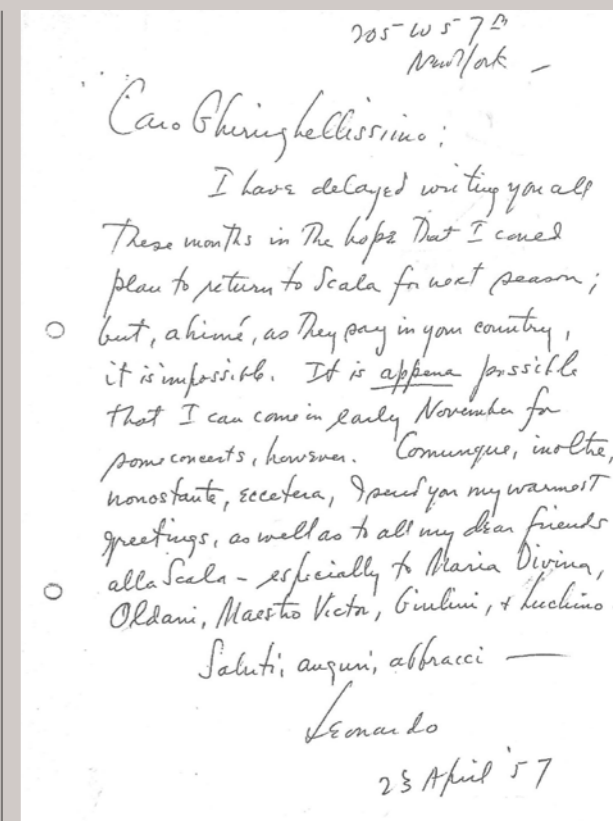 205 W 57th
New York –
Caro Ghiringhellissimo:
I have delayed writing you all
these months in the hope that I could
plan to return to Scala for next season;
but, ahimé, as they say in your country,
it is impossible. It is appena possible
that I can come in early November for
some concerts, however. Comunque, inoltre,
nonostante, eccetera, I send you my warmest
greetings, as well as to all my dear friends
alla Scala – especially to Maria Divina,
Oldani, Maestro Victor, Giulini, + Luchino
Saluti, auguri, abbracci —
Leonardo
23 April '57